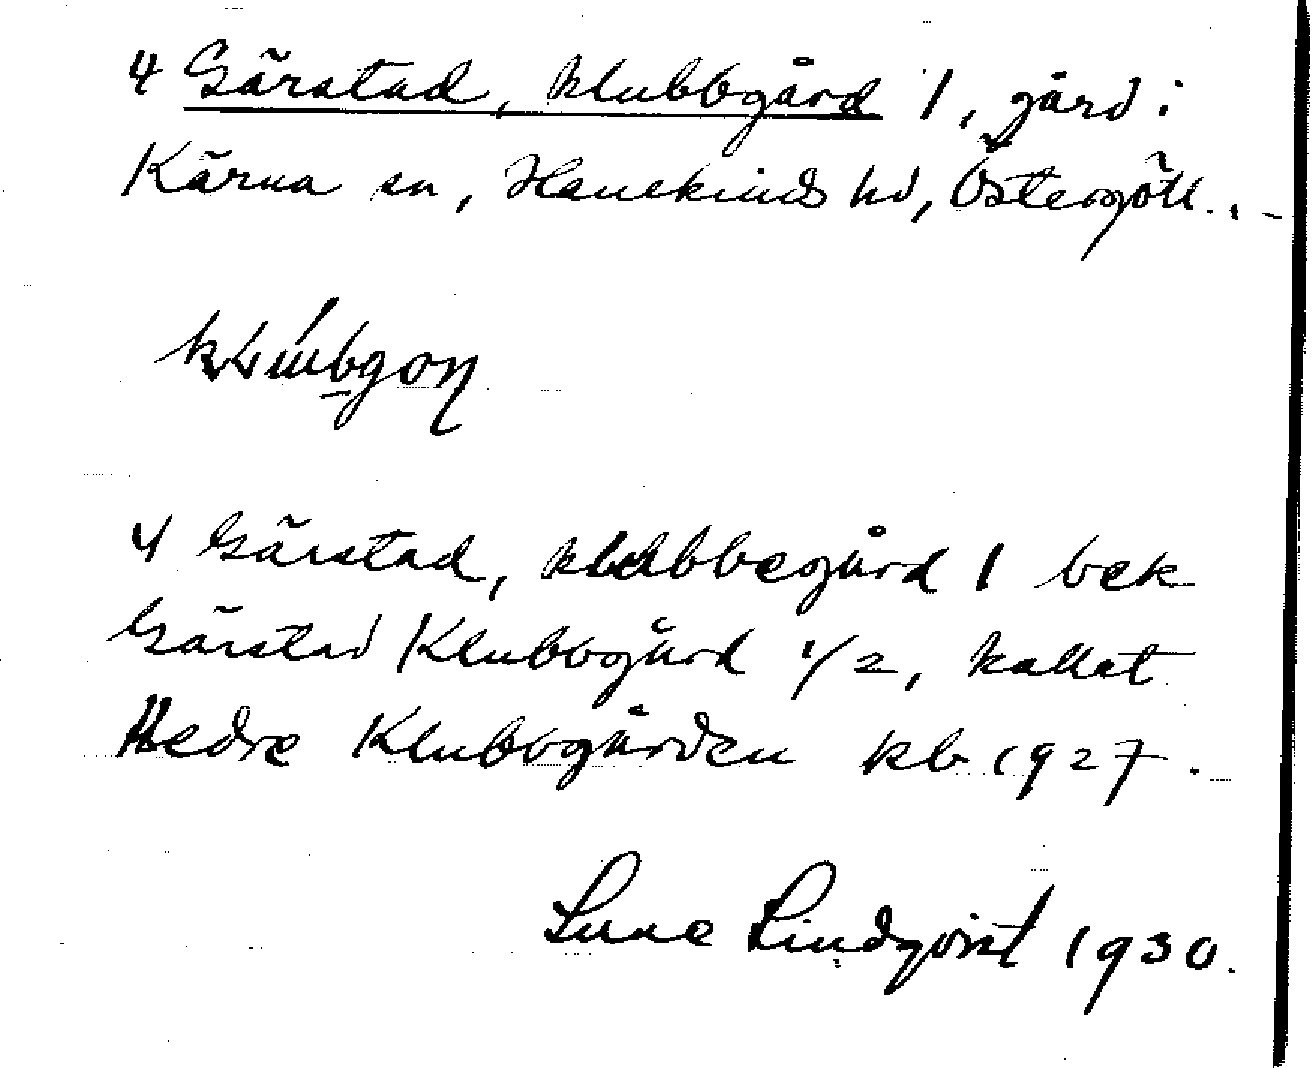 4 Gärstad, Klubbgård 1, gård i
Kärna sn, Hanekinds hd, Östergötl.
4 Gärstad, klubbegård 1 bek
Gärstad Klubbgård 1/2, kallat
Nedre Klubbgården kb 1927.
Sune Lindqvist 1930.